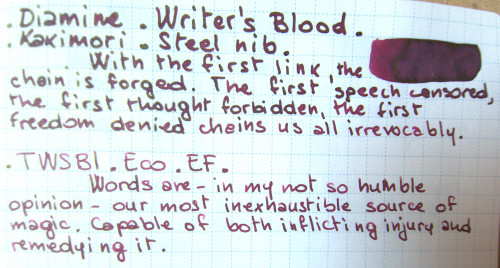 . Diamine . Writer's Blood .
. Kakimori . Steel nib .
With the first link, the
chein is forged. The first speech censored,
the first thought forbidden, the first
freedom denied cheins us all irrevocably.
. TWSBI . Eco . EF .
Words are - in my not so humble
opinion - our most inexhaustible source of
magic. Capable of both inflicting injury and
remedying it.